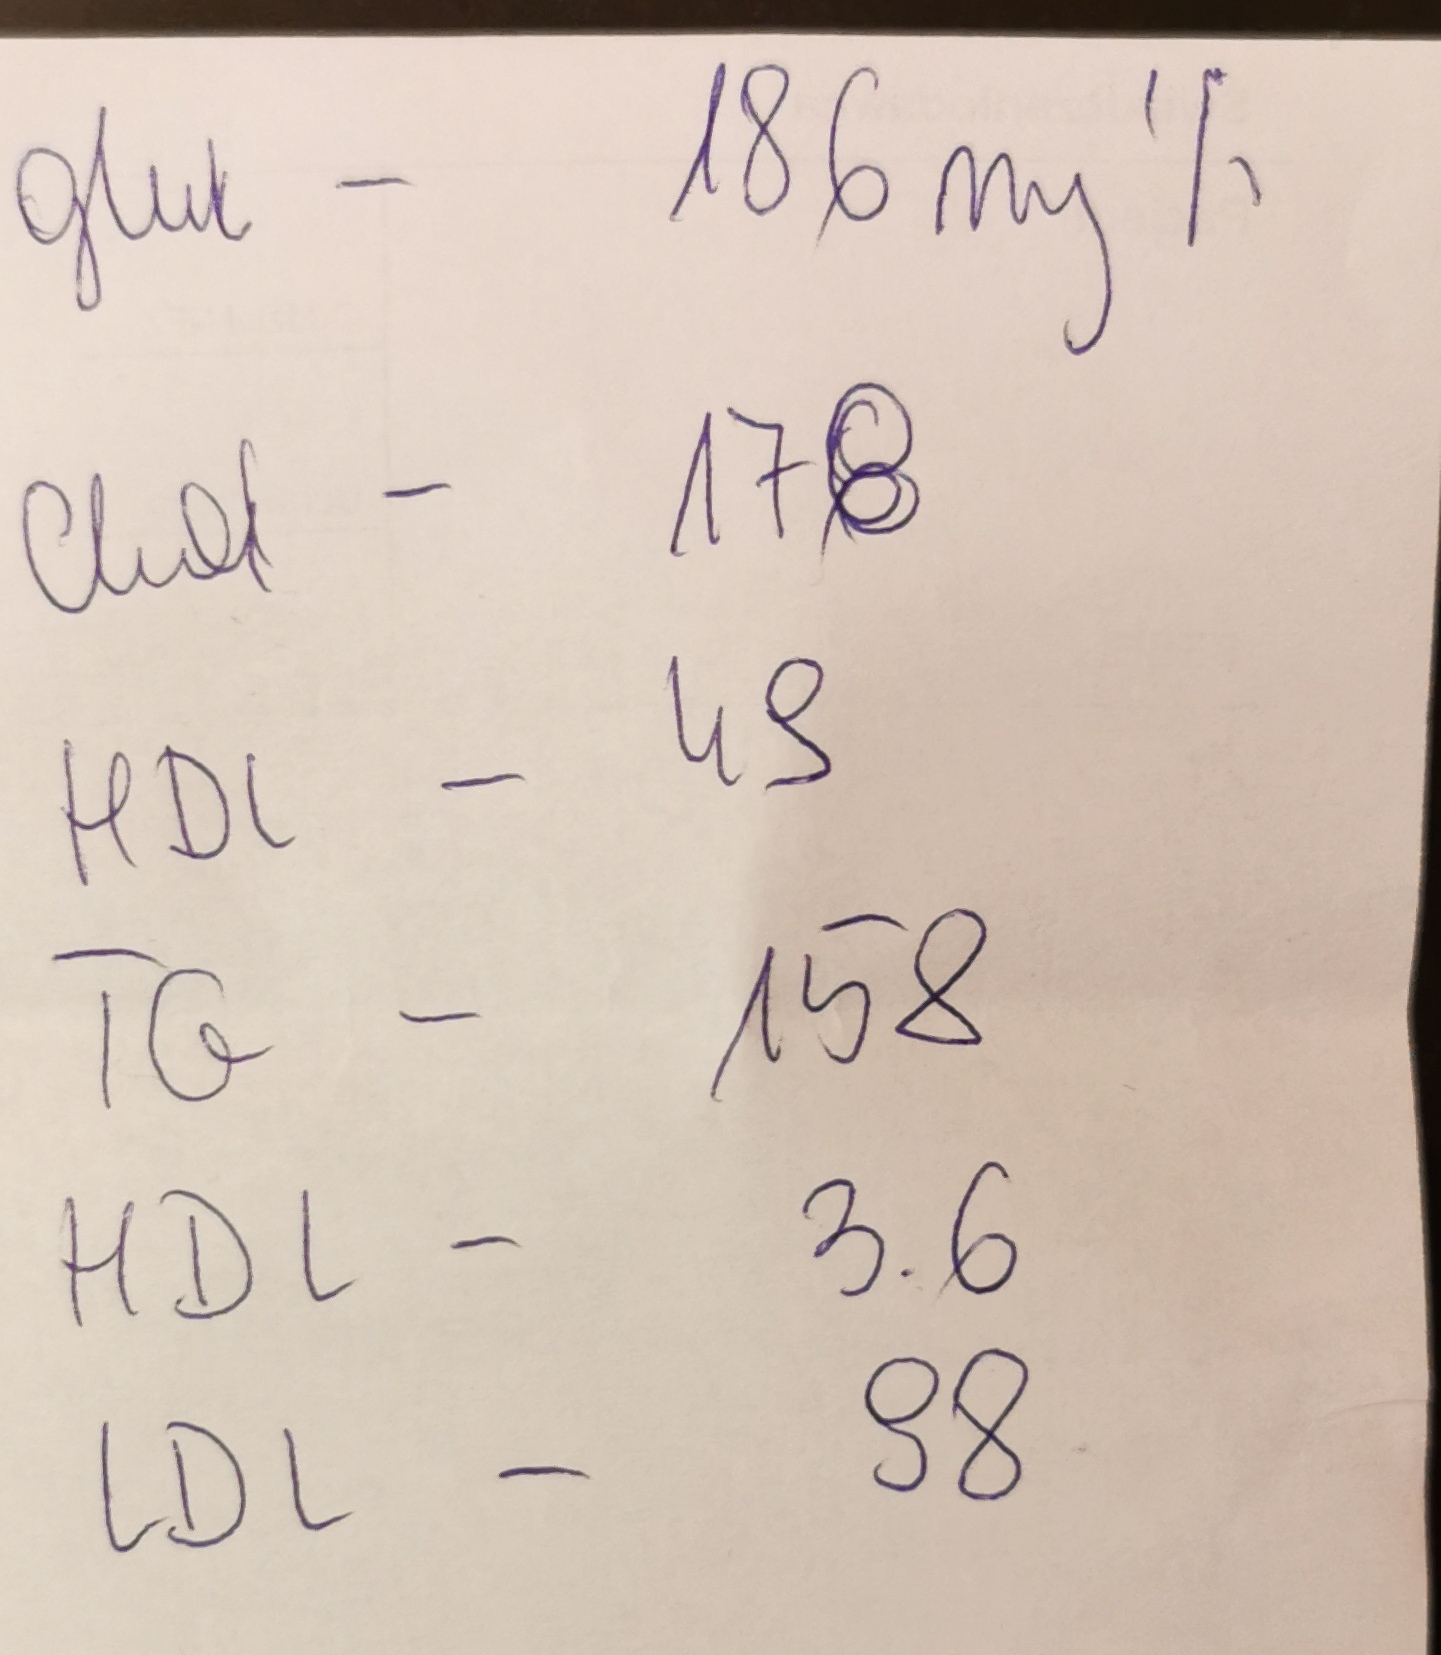 gluk - 186 mg %
Chol - 178
HDL - 49
TG - 158
HDL - 3.6
LDL - 98